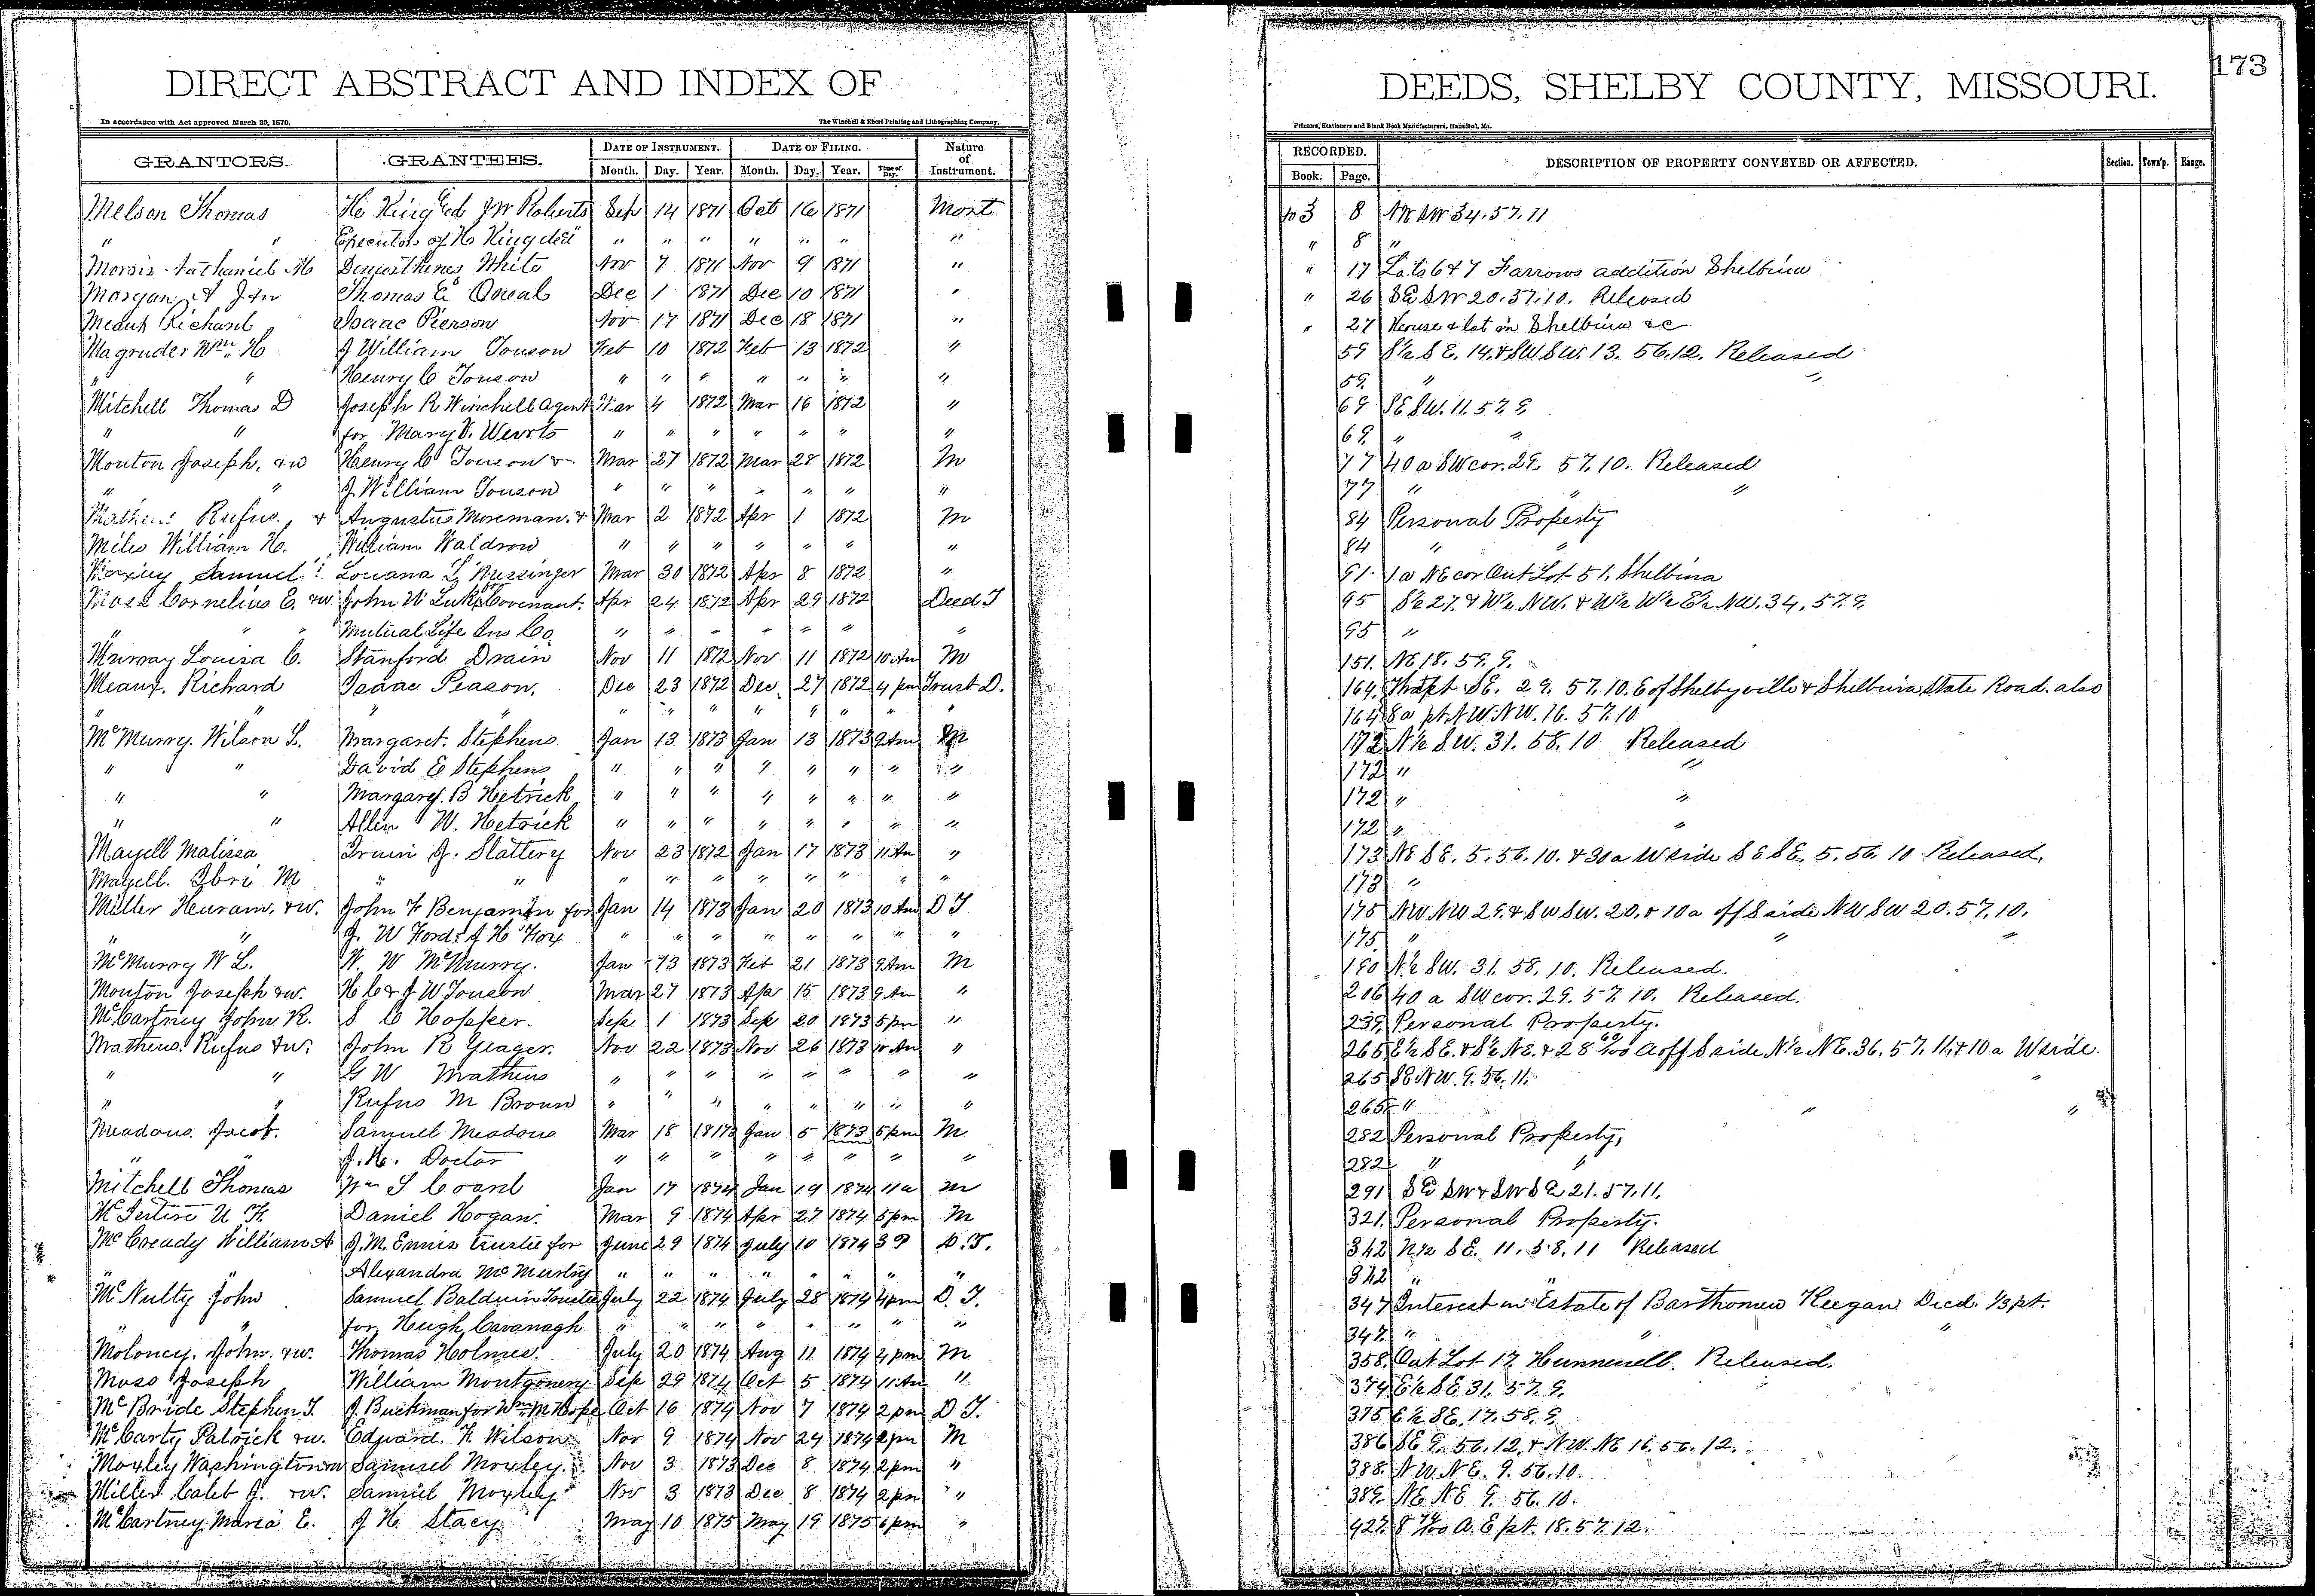 173
DIRECT ABSTRACT AND INDEX OF DEEDS, SHELBY COUNTY, MISSOURI.
In accordance with Act approved March 25, 1870. The Winchell & Ebert Printing and Lithographing Company, Printers, Stationers and Blank Book Manufacturers, Hannibal, Mo.
GRANTORS. GRANTEES. DATE OF INSTRUMENT. DATE OF FILING. Nature of Instrument. RECORDED. DESCRIPTION OF PROPERTY CONVEYED OR AFFECTED. Section. Town'p. Range.
Month. Day. Year. Month. Day. Year. Time of Day. Book. Page.
Melson Thomas J W Roberts Sep 14 1871 Oct 16 1871 Mort 3 8 NW SW 34.57.11
" " Executors of H King decd " " " " " " " " 8 "
Morris Nathaniel M Demosthenes White Nov 7 1871 Nov 9 1871 " " 17 Lots 6 & 7 Farrows addition Shelbina
Morgan A J & w Thomas E Oneal Dec 1 1871 Dec 10 1871 " " 26 SE SW 20.57.10. Released
Meaux Richard Isaac Pierson Nov 17 1871 Dec 18 1871 " " 27 House & lot in Shelbina &c
Magruder Wm H J William Touson Feb 10 1872 Feb 13 1872 " 59 S½ S E. 14. & SW SW. 13. 56.12. Released
" " Henry C Touson " " " " " " " 59. " "
Mitchell Thomas D Joseph R Winchell Agent Mar 4 1872 Mar 16 1872 " 69 SE SW. 11. 57. 9.
" " for Mary V. " " " " " " " 69. " "
Mouton Joseph, & w Henry C Touson & Mar 27 1872 Mar 28 1872 M 77 40 a SW cor. 29. 57. 10. Released
" " J William Touson " " " " " " " 77 " " "
Rufus & Augustus Moreman & Mar 2 1872 Apr 1 1872 M 84 Personal Property
Miles William H. William Waldrow " " " " " " " 84 " "
Samuel Louana L Mar 30 1872 Apr 8 1872 " 91. 1 a NE cor Out Lot 51, Shelbina
Moss Cornelius E. & w. John W Luke Covenant Apr 24 1872 Apr 29 1872 Deed T 95 S½ 27. & W½ NW. & W½ W½ E½ NW. 34. 57. 9.
" " Mutual Life Ins Co " " " " " " " 95 "
Murray Louisa C. Stanford Drain Nov 11 1872 Nov 11 1872 10 Am M 151. NE 18. 59. 9.
Meaux. Richard Isaac Peason. Dec 23 1872 Dec. 27 1872 4 pm Trust D. 164. That pt SE. 29. 57. 10. E of Shelbyville & Shelbina State Road. also
" " " " " " " " " " " 164 8 a pt NW NW. 16. 57. 10
McMurry. Wilson L. Margaret. Stephens. Jan 13 1873 Jan 13 1873 9 Am M 172 N½ SW. 31. 58. 10 Released
" " David E Stephens " " " " " " " " 172 " "
" " Margaret. B Hetrick " " " " " " " " 172 " "
" " Allen W. Hetrick " " " " " " " " 172 " "
Mayell Malissa J. Slattery Nov 23 1872 Jan 17 1873 11 Am " 173 NE SE. 5. 56. 10. & 30 a W side SE SE. 5. 56 10 Released.
Mayell. M " " " " " " " " " " 173 "
Miller Heiram. & w. John F Benjamin for Jan 14 1873 Jan 20 1873 10 Am D T 175 NW NW 29. & SW SW. 20. & 10 a off S side NW SW 20. 57. 10.
" " J. W Ford & J H Fox " " " " " " " " 175. " " "
McMurry W L. W. W McMurry. Jan 13 1873 Feb 21 1873 9 Am M 190 N½ SW. 31. 58. 10. Released.
Mouton Joseph & w. H C & J W Touson Mar 27 1873 Apr 15 1873 9 Am " 206 40 a SW cor. 29. 57. 10. Released.
McCartney John R. S C Hopper. Sep 1 1873 Sep 20 1873 5 pm " 239. Personal Property.
Mathews. Rufus & w. John R Yeager. Nov 22 1873 Nov 26 1873 10 Am " 265 E½ SE. & S½ NE. & 28 69/100 A off S side N½ NE. 36. 57. 11. & 10 a W side.
" " G W Mathews " " " " " " " " 265 SE NW. 9. 56. 11. "
" " Rufus M Broun " " " " " " " " 265 " " "
Meadows. Jacob. Samuel Meadows Mar 18 1873 Jan 5 1873 5 pm M 282 Personal Property,
" " J. H. Doctor " " " " " " " " 282 " "
Mitchell Thomas Wm S Coard Jan 17 1874 Jan 19 1874 11 a M 291 SE SW & SW SE 21. 57. 11.
U F. Daniel Hogan. Mar 9 1874 Apr 27 1874 5 pm M 321. Personal Property.
McCready William A J. M. Ennis trustee for June 29 1874 July 10 1874 39 D. T. 342 N½ SE. 11. 58. 11 Released
Alexandra McMurtry " " " " " " " " 342 " "
McNulty John Samuel Baldwin Trustee July 22 1874 July 28 1874 4 pm D. T. 347 Interest in Estate of Barthomew Keegan Decd. 1/3 pt.
" " for Hugh Cavanagh " " " " " " " " 347. " " "
Moloney. John. & w. Thomas Holmes. July 20 1874 Aug 11 1874 4 pm M 358. Out Lot 17. Hunnewell. Released.
Moss Joseph William Montgomery Sep 29 1874 Oct 5 1874 11 Am " 374. E½ SE. 31. 57. 9.
McBride Stephen T. J. Buckman for Wm M Hope Oct 16 1874 Nov 7 1874 2 pm D T. 375 E½ SE. 17. 58. 9.
McCarty Patrick & w. Edward. K. Wilson Nov 9 1874 Nov 24 1874 2 pm M 386 SE 9. 56. 12. & NW. NE 16. 56. 12.
Moxley Washington & w Samuel Moxley. Nov 3 1873 Dec 8 1874 2 pm " 388. NW. NE. 9. 56. 10.
Miller Caleb J. & w. Samuel Moxley Nov 3 1873 Dec 8 1874 2 pm " 389. NE NE 9. 56. 10.
McCartney Maria E. J H Stacy May 10 1875 May 19 1875 6 pm " 427. A. E pt. 18. 57. 12.